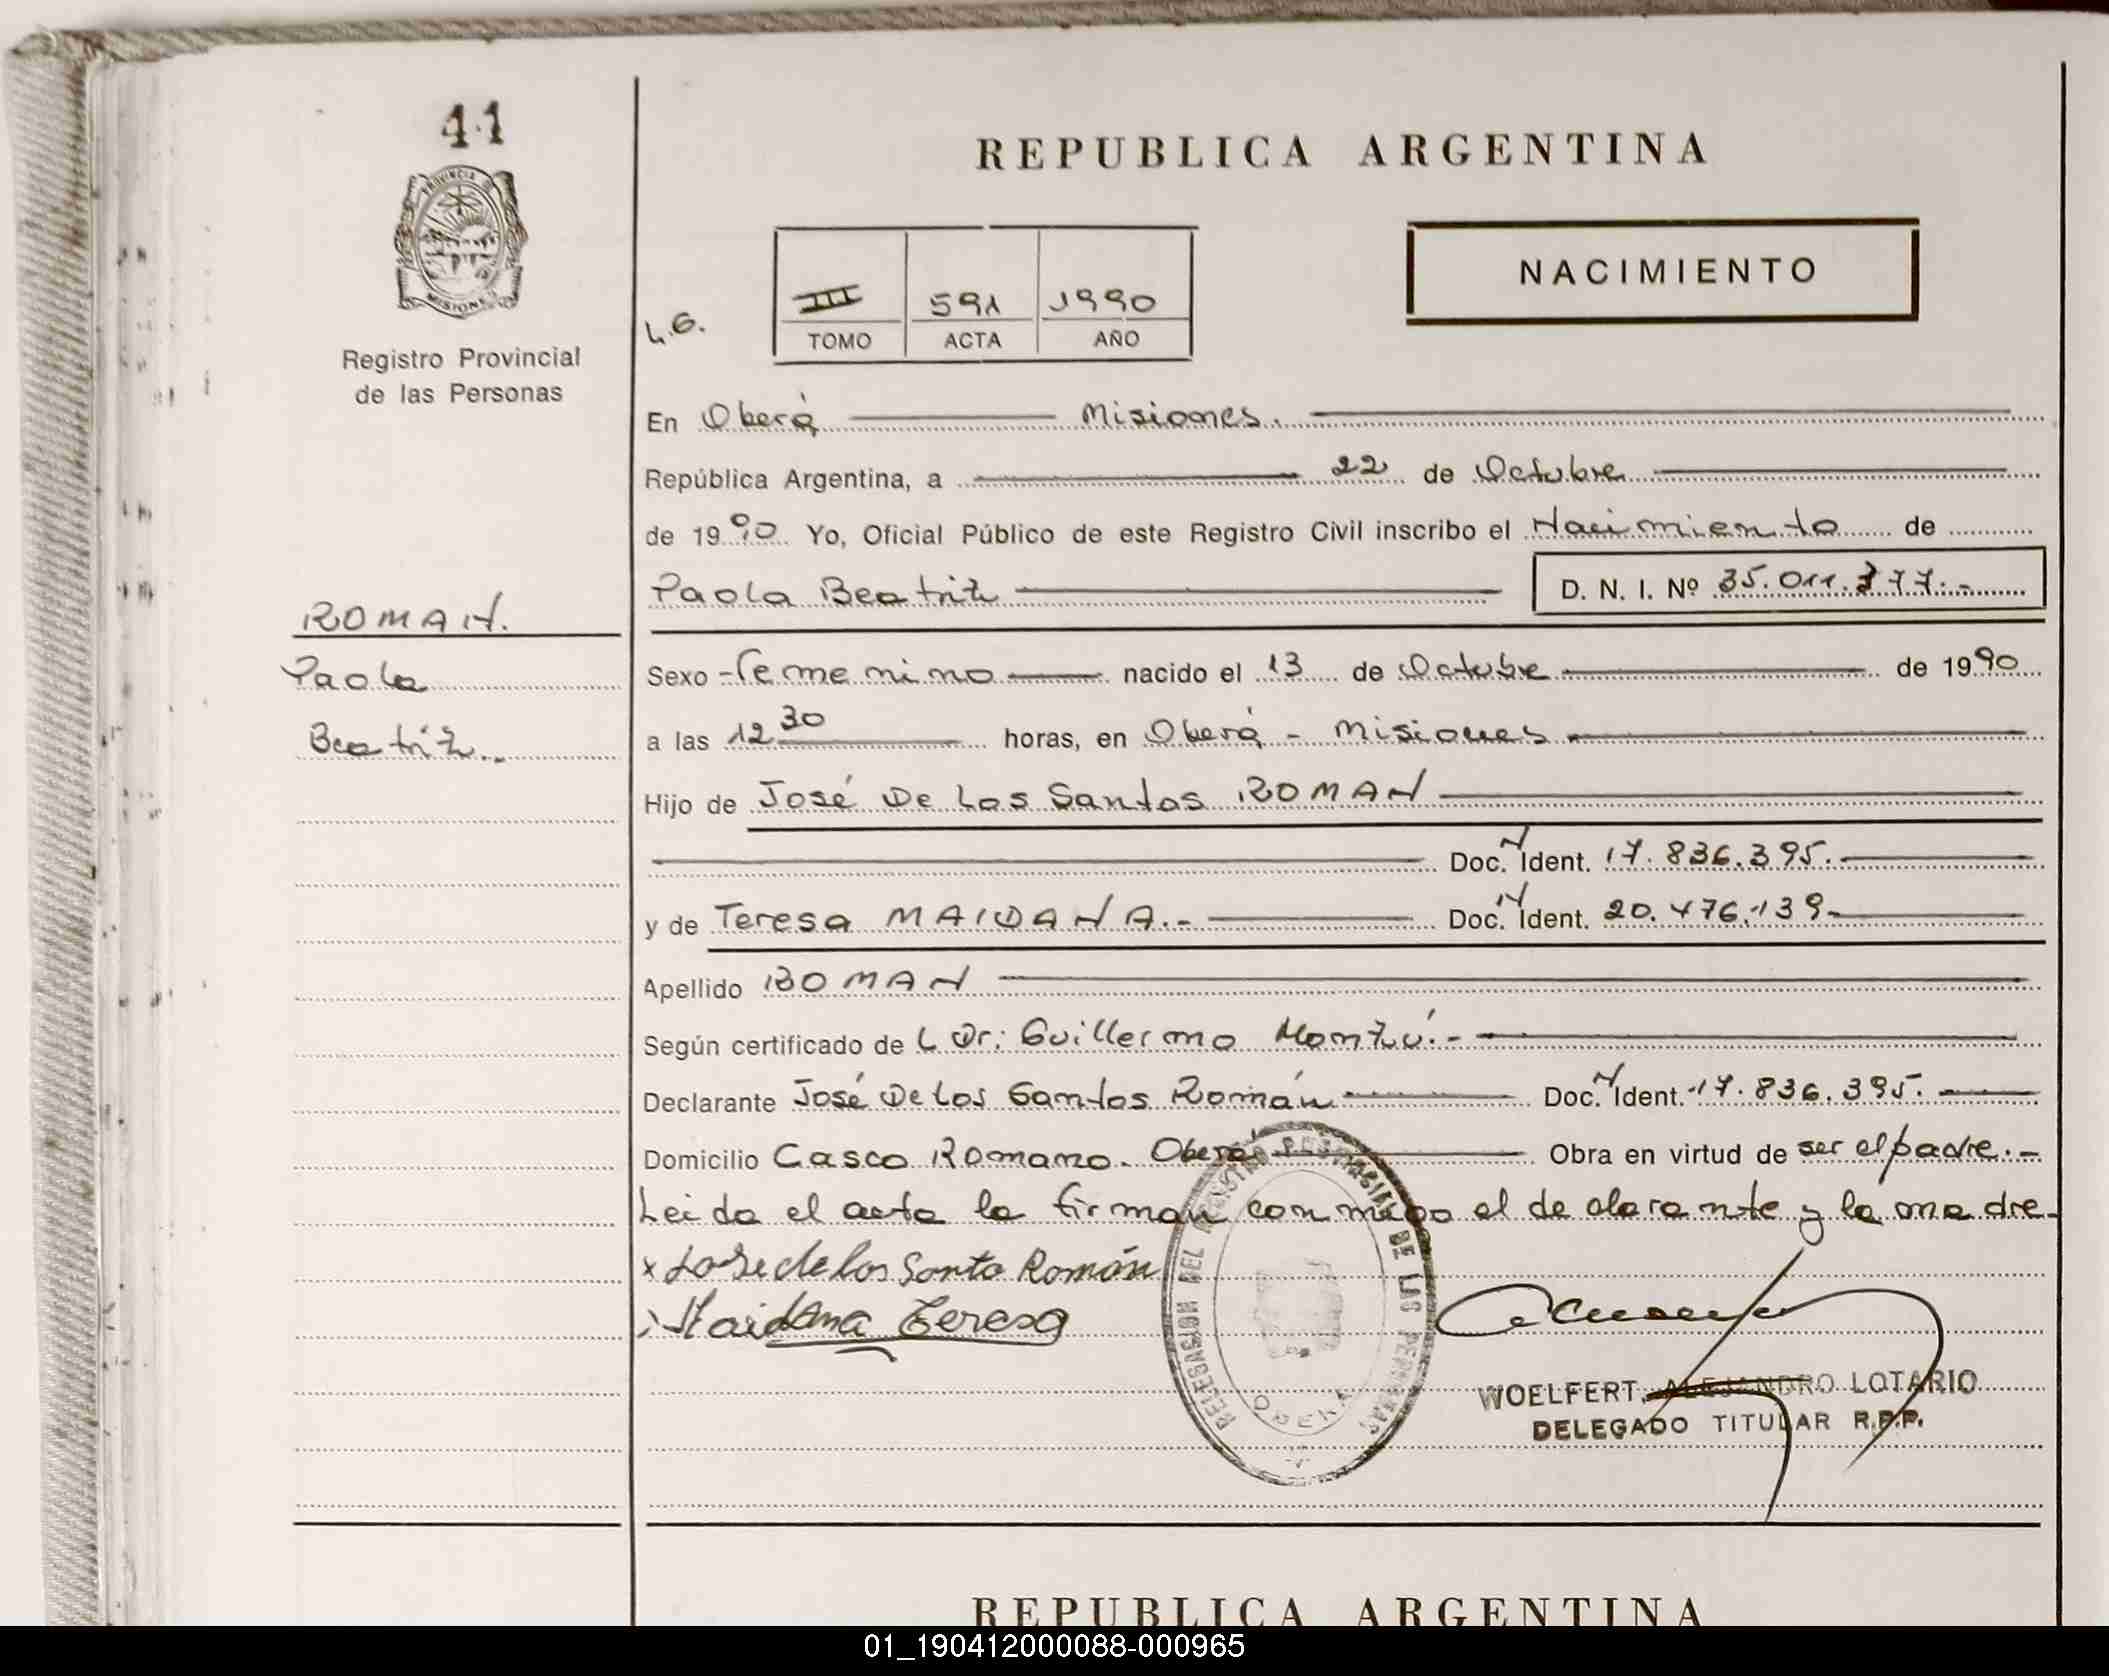 41
PROVINCIA DE
MISIONES
Registro Provincial
de las Personas
REPUBLICA ARGENTINA
NACIMIENTO
L.G.
III 591 1990
TOMO ACTA AÑO
En Oberá Misiones.
República Argentina, a 22 de Octubre
de 1990 Yo, Oficial Público de este Registro Civil inscribo el Nacimiento de
Paola Beatriz D. N. I. Nº 35.011.377.-
ROMAN.
Paola
Beatriz.
Sexo Femenino nacido el 13 de Octubre de 1990
a las 12 30 horas, en Oberá - Misiones
Hijo de José De Los Santos ROMAN
Doc. N Ident. 17.836.395.
y de Teresa MAIDANA.- Doc. N Ident. 20.476.139-
Apellido ROMAN
Según certificado de L Dr: Guillermo Montú.-
Declarante José De Los Santos Román Doc. N Ident. 17.836.395.
Domicilio Casco Romano. Oberá Obra en virtud de ser el padre.-
Leida el acta la firman conmigo el declarante y la madre-
x Jose de los Santo Román
Maidana Teresa
DELEGASION DEL REGISTRO PROVINCIAL DE LAS PERSONAS
OBERA
WOELFERT, ALEJANDRO LOTARIO
DELEGADO TITULAR R.P.P.
REPUBLICA ARGENTINA
01_190412000088-000965